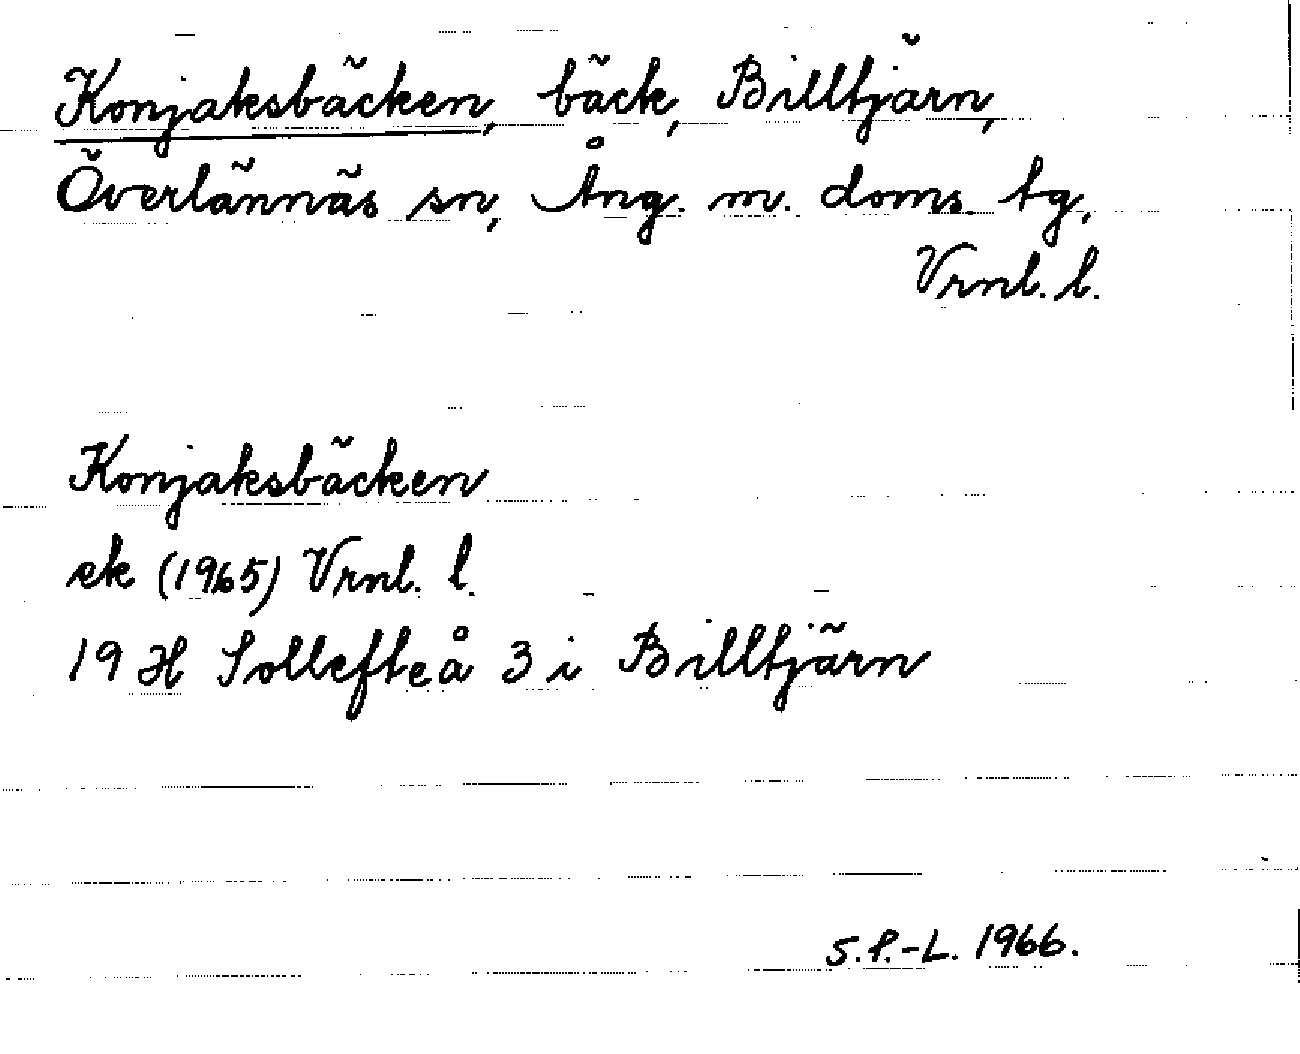 Konjaksbäcken, bäck, Billtjärn,
Överlännäs sn, Ång. m. doms. tg,
Vrnl. l.
Konjaksbäcken
ek (1965) Vrnl. l.
19 H Sollefteå 3 i Billtjärn
S.P.-L. 1966.